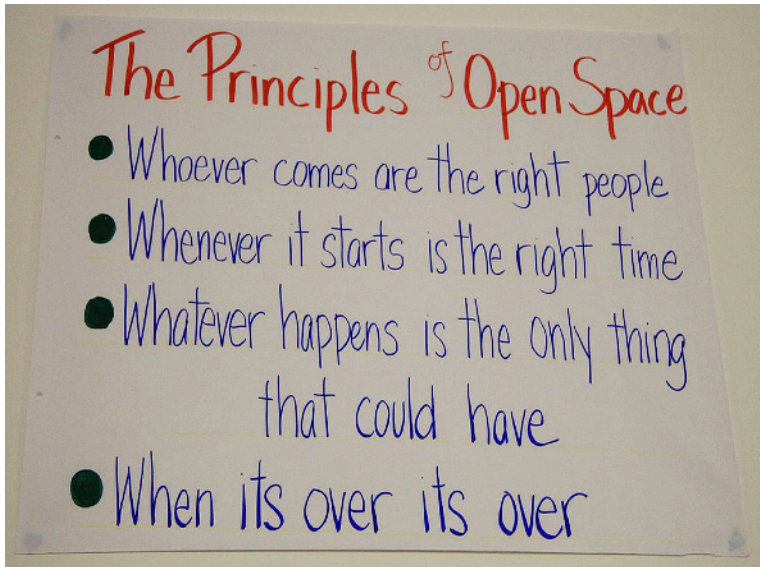 The Principles of Open Space
● Whoever comes are the right people
● Whenever it starts is the right time
● Whatever happens is the only thing
that could have
● When its over its over